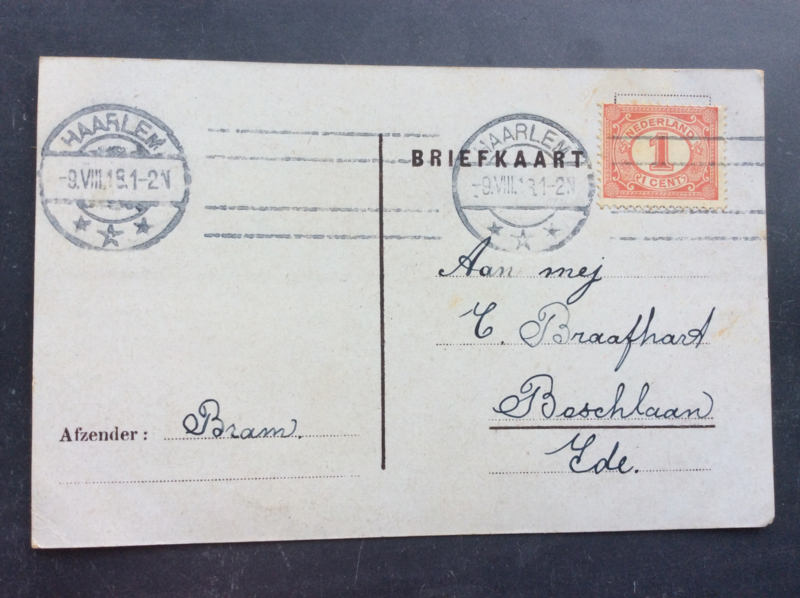 HAARLEM
-9.VIII.18.1-2N
HAARLEM
-9.VIII.18.1-2N
BRIEFKAART
NEDERLAND
1
1 CENT
Aan mej
C. Braafhart
Boschlaan
Ede.
Afzender: Bram.